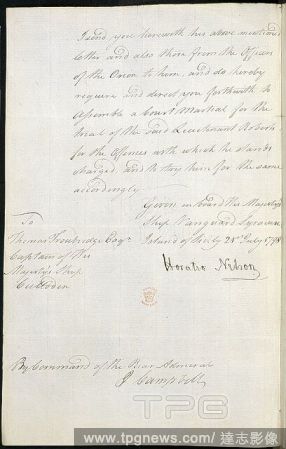 I send you herewith his above mentioned
letter and also those from the Officers
of the Orion to him, and do hereby
require and direct you forthwith to
Assemble a Court Martial for the
trial of the said Lieutenant Roberts
for the Offences with which he stands
charged and to try him for the same
accordingly
Given on board the Majesty's
Ship Vanguard Syracuse
Island of Sicily 21st July 1798
Horatio Nelson
To
Thomas Troubridge Esqr.
Captain of His
Majesty's Ship
Culloden
By Command of the Rear Admiral
J Campbell
TPG
www.tpgnews.com / 達志影像